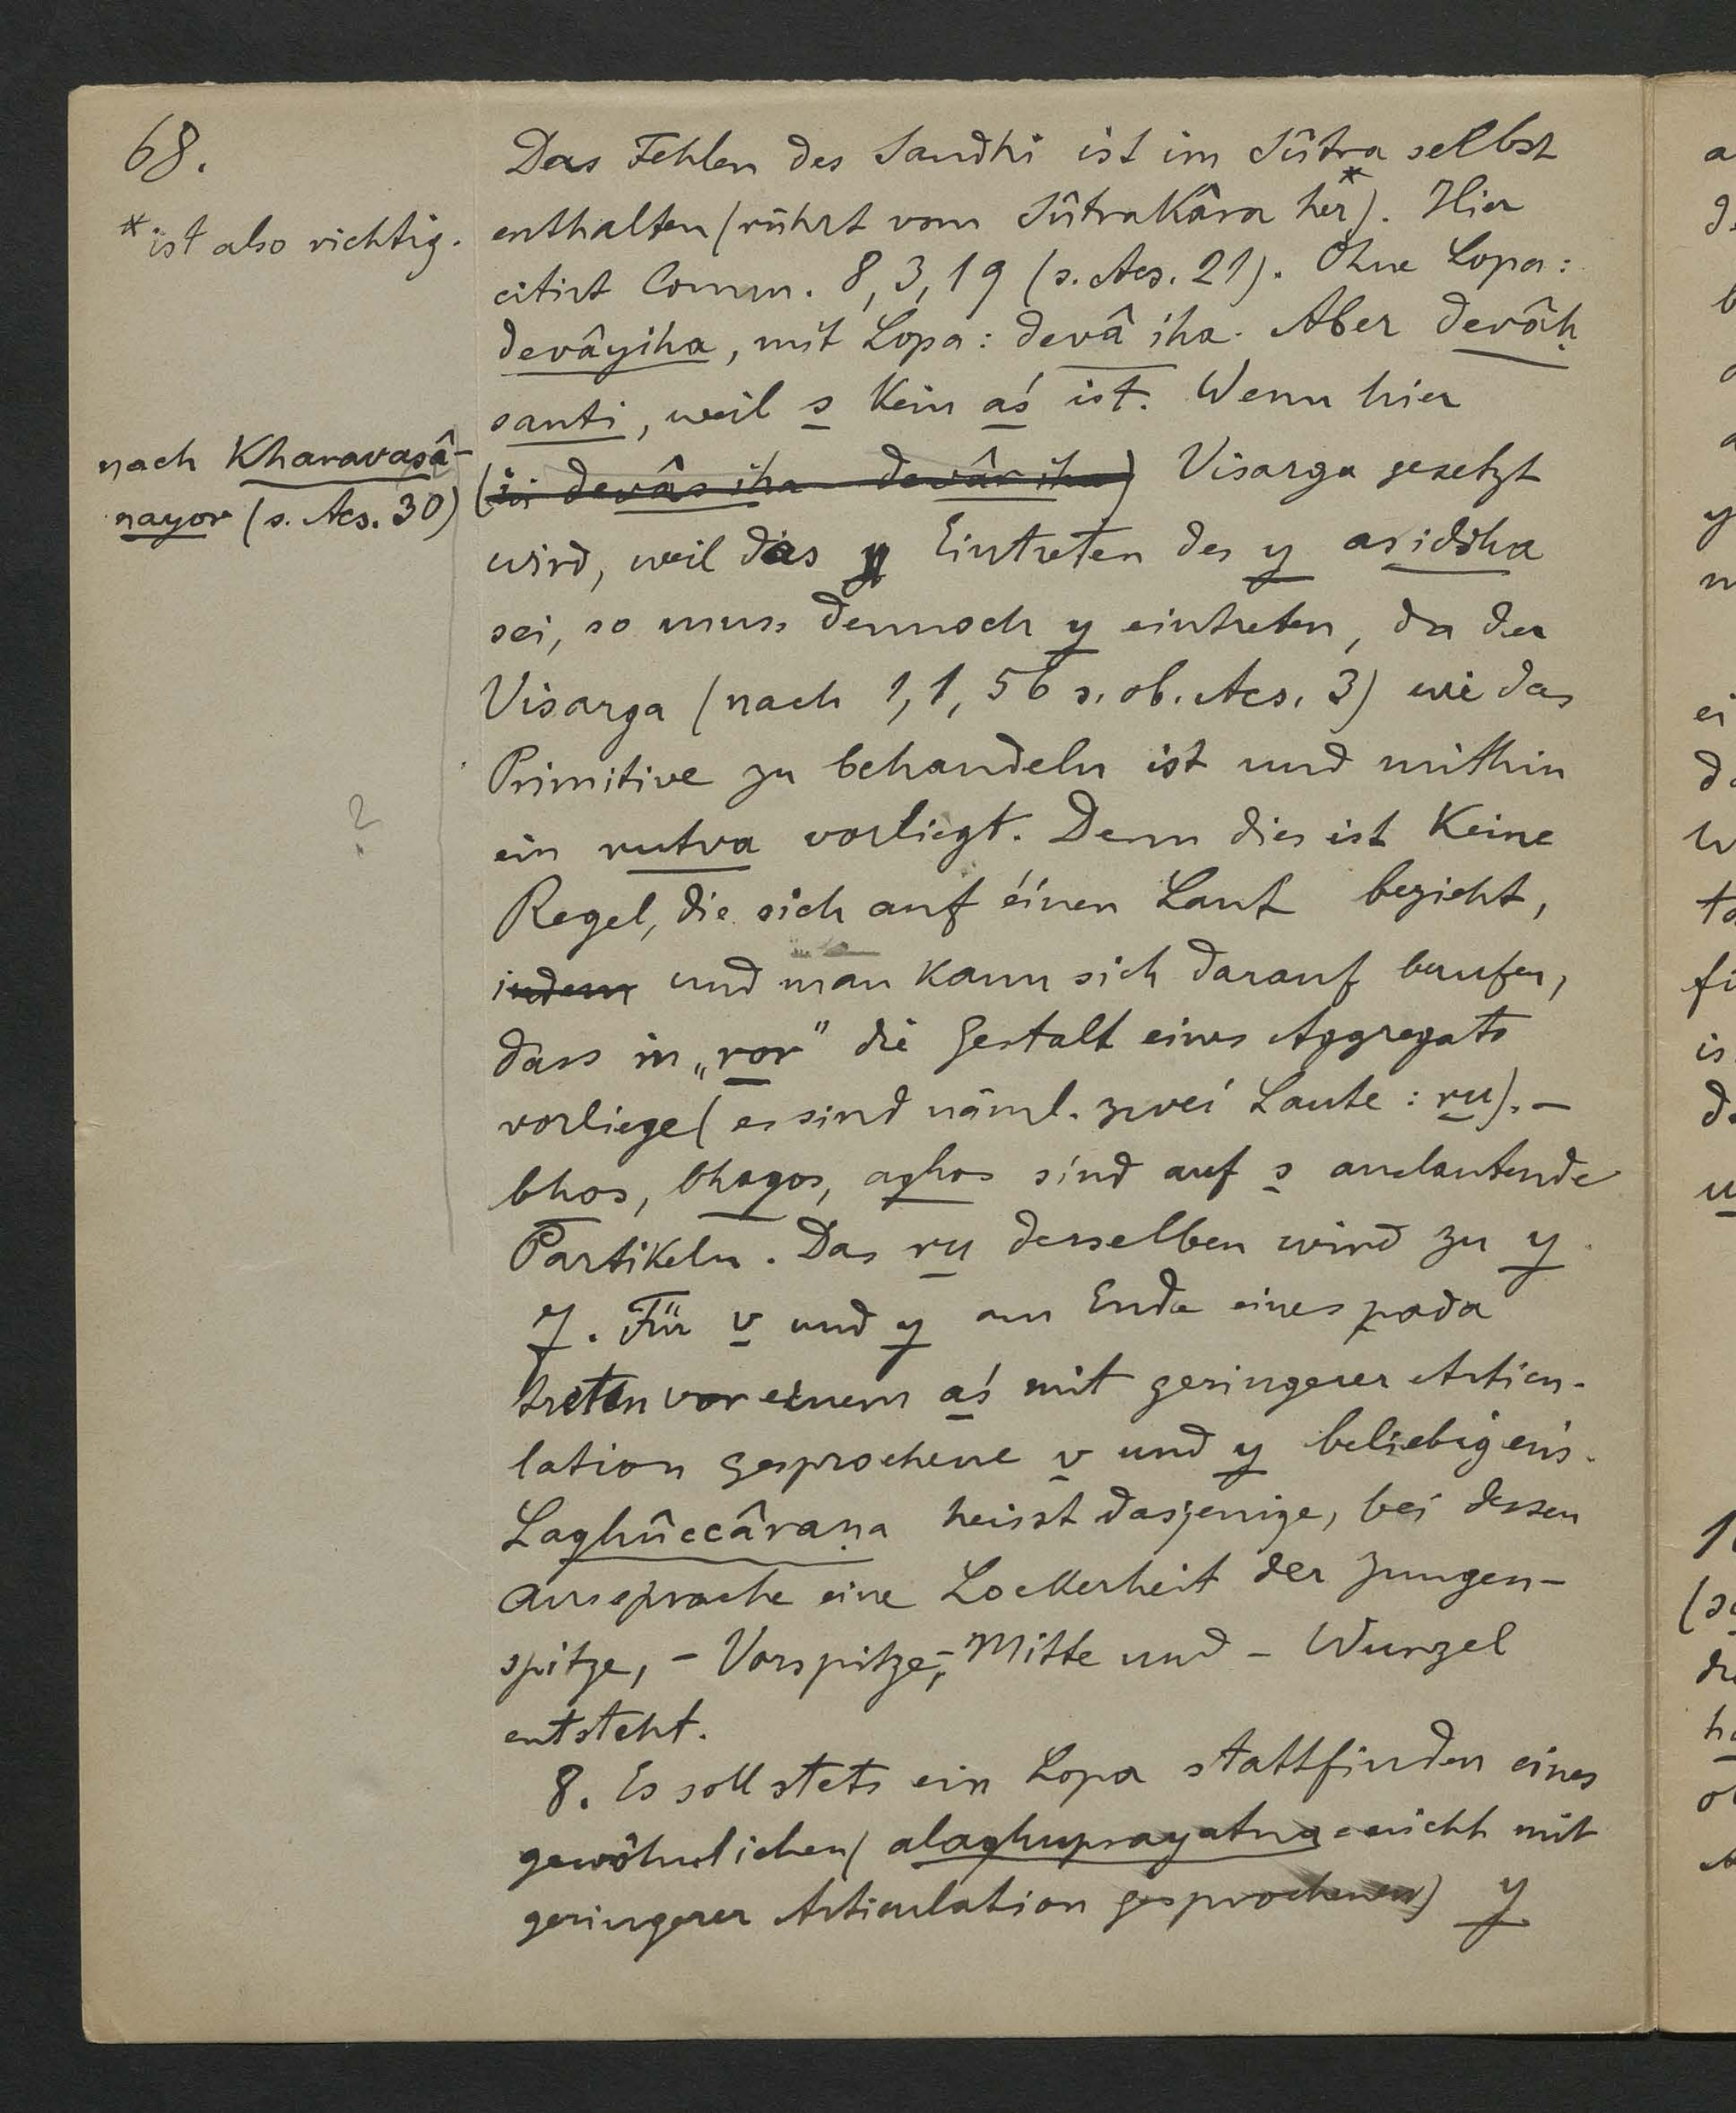 68.
*ist also richtig.
Das Fehlen des Sandhi ist im Sûtra selbst
enthalten (rührt vom Sûtrakâra her*). Hier
citirt Comm. 8,3,19 (s. Acs. 21). Ohne Lopa:
devâyiha, mit Lopa: devâ iha. Aber devâḥ
santi, weil s kein aś ist. Wenn hier
nach Kharavasâ-
nayor (s. Acs. 30)
(in devâs iha devâr iha) Visarga gesetzt
wird, weil das y Eintreten des y asiddha
sei, so muss dennoch y eintreten, da der
Visarga (nach 1,1,56 s. ob. Acs. 3) wie das
Primitive zu behandeln ist und mithin
?
ein rutva vorliegt. Denn dies ist keine
Regel, die sich auf éinen Laut bezieht,
indem und man kann sich darauf berufen,
dass in „ror" die Gestalt eines Aggregats
vorliege (es sind näml. zwei Laute: ru). —
bhos, bhagos, aghos sind auf s auslautende
Partikeln. Das ru desselben wird zu y.
7. Für v und y am Ende eines pada
treten vor einem aś mit geringerer Articu-
lation gesprochene v und y beliebig ein.
Laghûccâraṇa heisst dasjenige, bei dessen
Aussprache eine Lockerheit der Zungen-
spitze, - Vorspitze, - Mitte und - Wurzel
entsteht.
8. Es soll stets ein Lopa stattfinden eines
gewöhnlichen (alaghuprayatna = nicht mit
geringerer Articulation gesprochenen) y